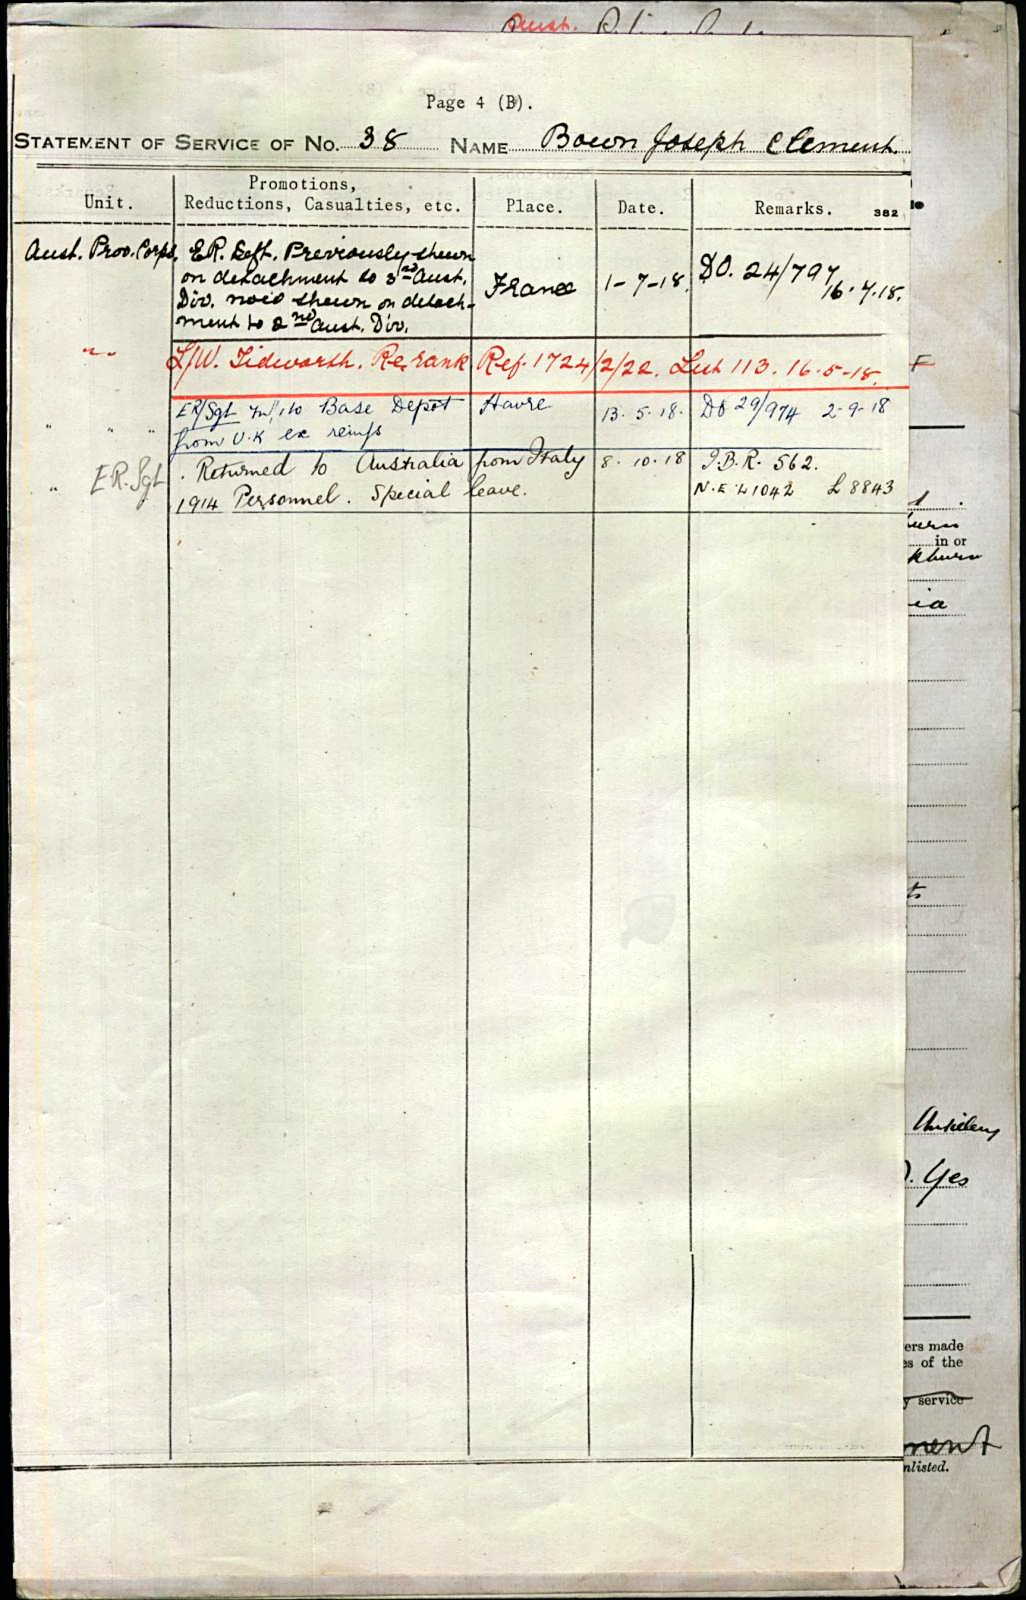 Aust.
Page 4 (B).
STATEMENT OF SERVICE OF NO. 38 NAME Bown Joseph Clement.
Unit. Promotions, Reductions, Casualties, etc. Place. Date. Remarks. 382
Aust. Prov. Corps. ER. Sgt. Previously shewn
on detachment to 3rd Aust.
Div. now shewn on detach-
ment to 2nd Aust. Div.
France 1-7-18. DO. 24/797
16.7.18.
" " L/W. Tidworth. Re. rank Ref. 1724/2/22. Lut 113. 16.5-18.
" " " ER/Sgt to Base Depot Havre 13.5.18. DO 29/974 2-9-18
from U.K ex reinfs
" ER. Sgt. Returned to Australia from Italy 8.10.18 I.B.R. 562.
1914 Personnel. Special leave. N.E.L1042 L 8843
in or
ia
ts
Yes
ers made
es of the
y service
ment
nlisted.